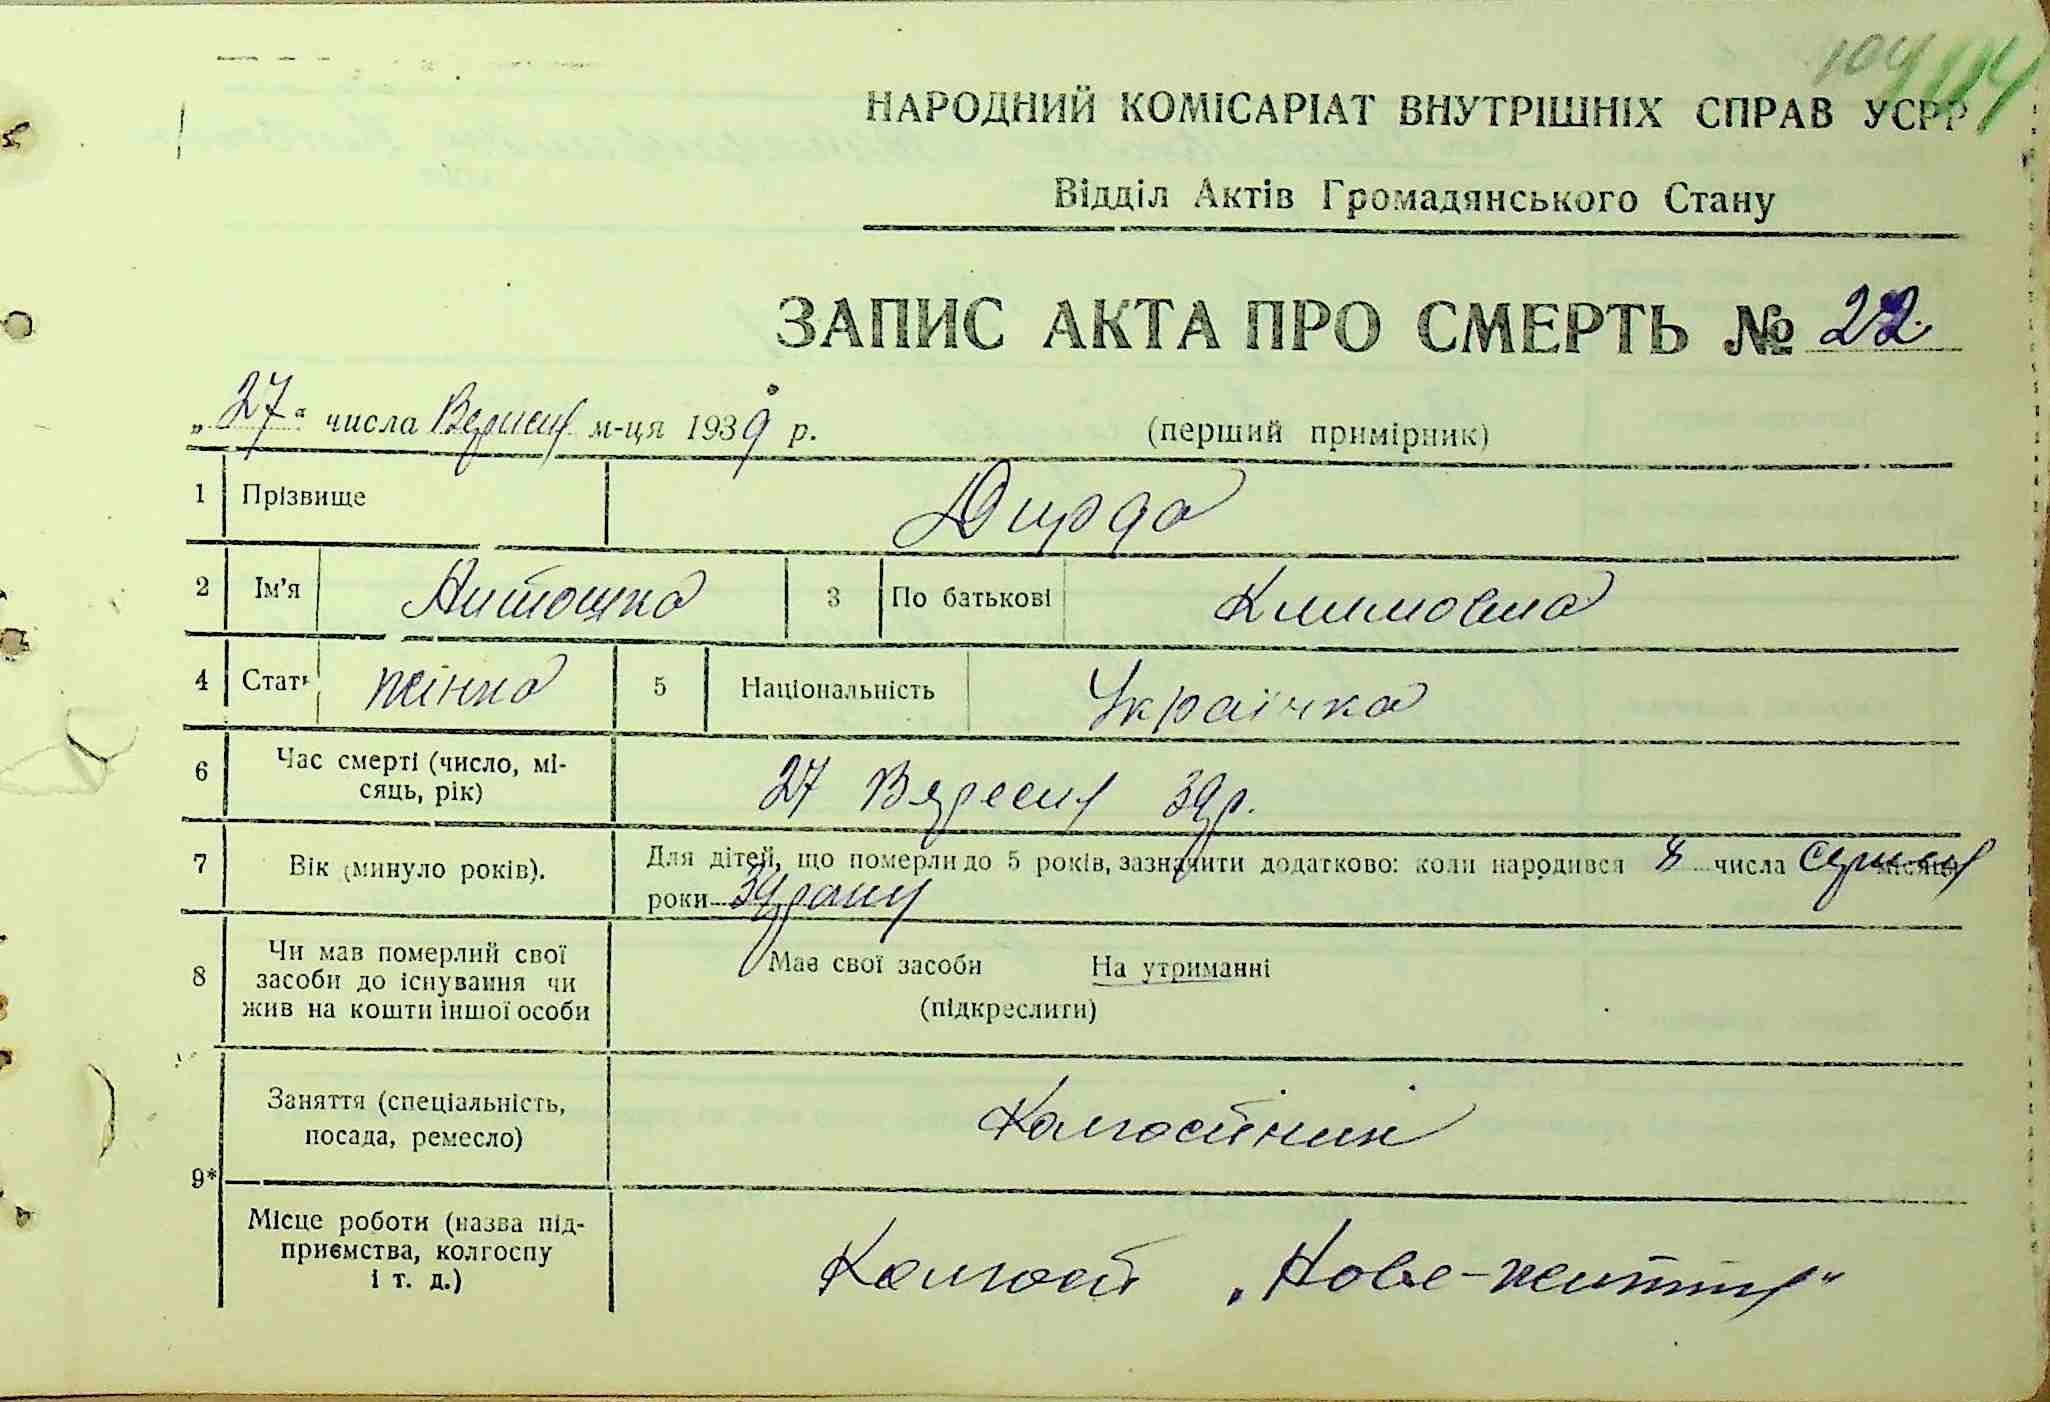 104 104
НАРОДНИЙ КОМІСАРІАТ ВНУТРІШНІХ СПРАВ УСРР
Відділ Актів Громадянського Стану
ЗАПИС АКТА ПРО СМЕРТЬ № 22
„27“ числа Вересня м-ця 1939 р. (перший примірник)
1 Прізвище Дирда
2 Ім'я Антошка 3 По батькові Климовна
4 Стать жінка 5 Національність Українка
6 Час смерті (число, мі-
сяць, рік) 27 Вересня 39 р.
7 Вік (минуло років). Для дітей, що померли до 5 років, зазначити додатково: коли народився 8 числа серпня місяць
роки 39 року
8 Чи мав померлий свої
засоби до існування чи
жив на кошти іншої особи
Має свої засоби На утриманні
(підкреслити)
9* Заняття (спеціальність,
посада, ремесло) Колгоспник
Місце роботи (назва під-
приємства, колгоспу
і т. д.) Колгосп „Нове-життя"